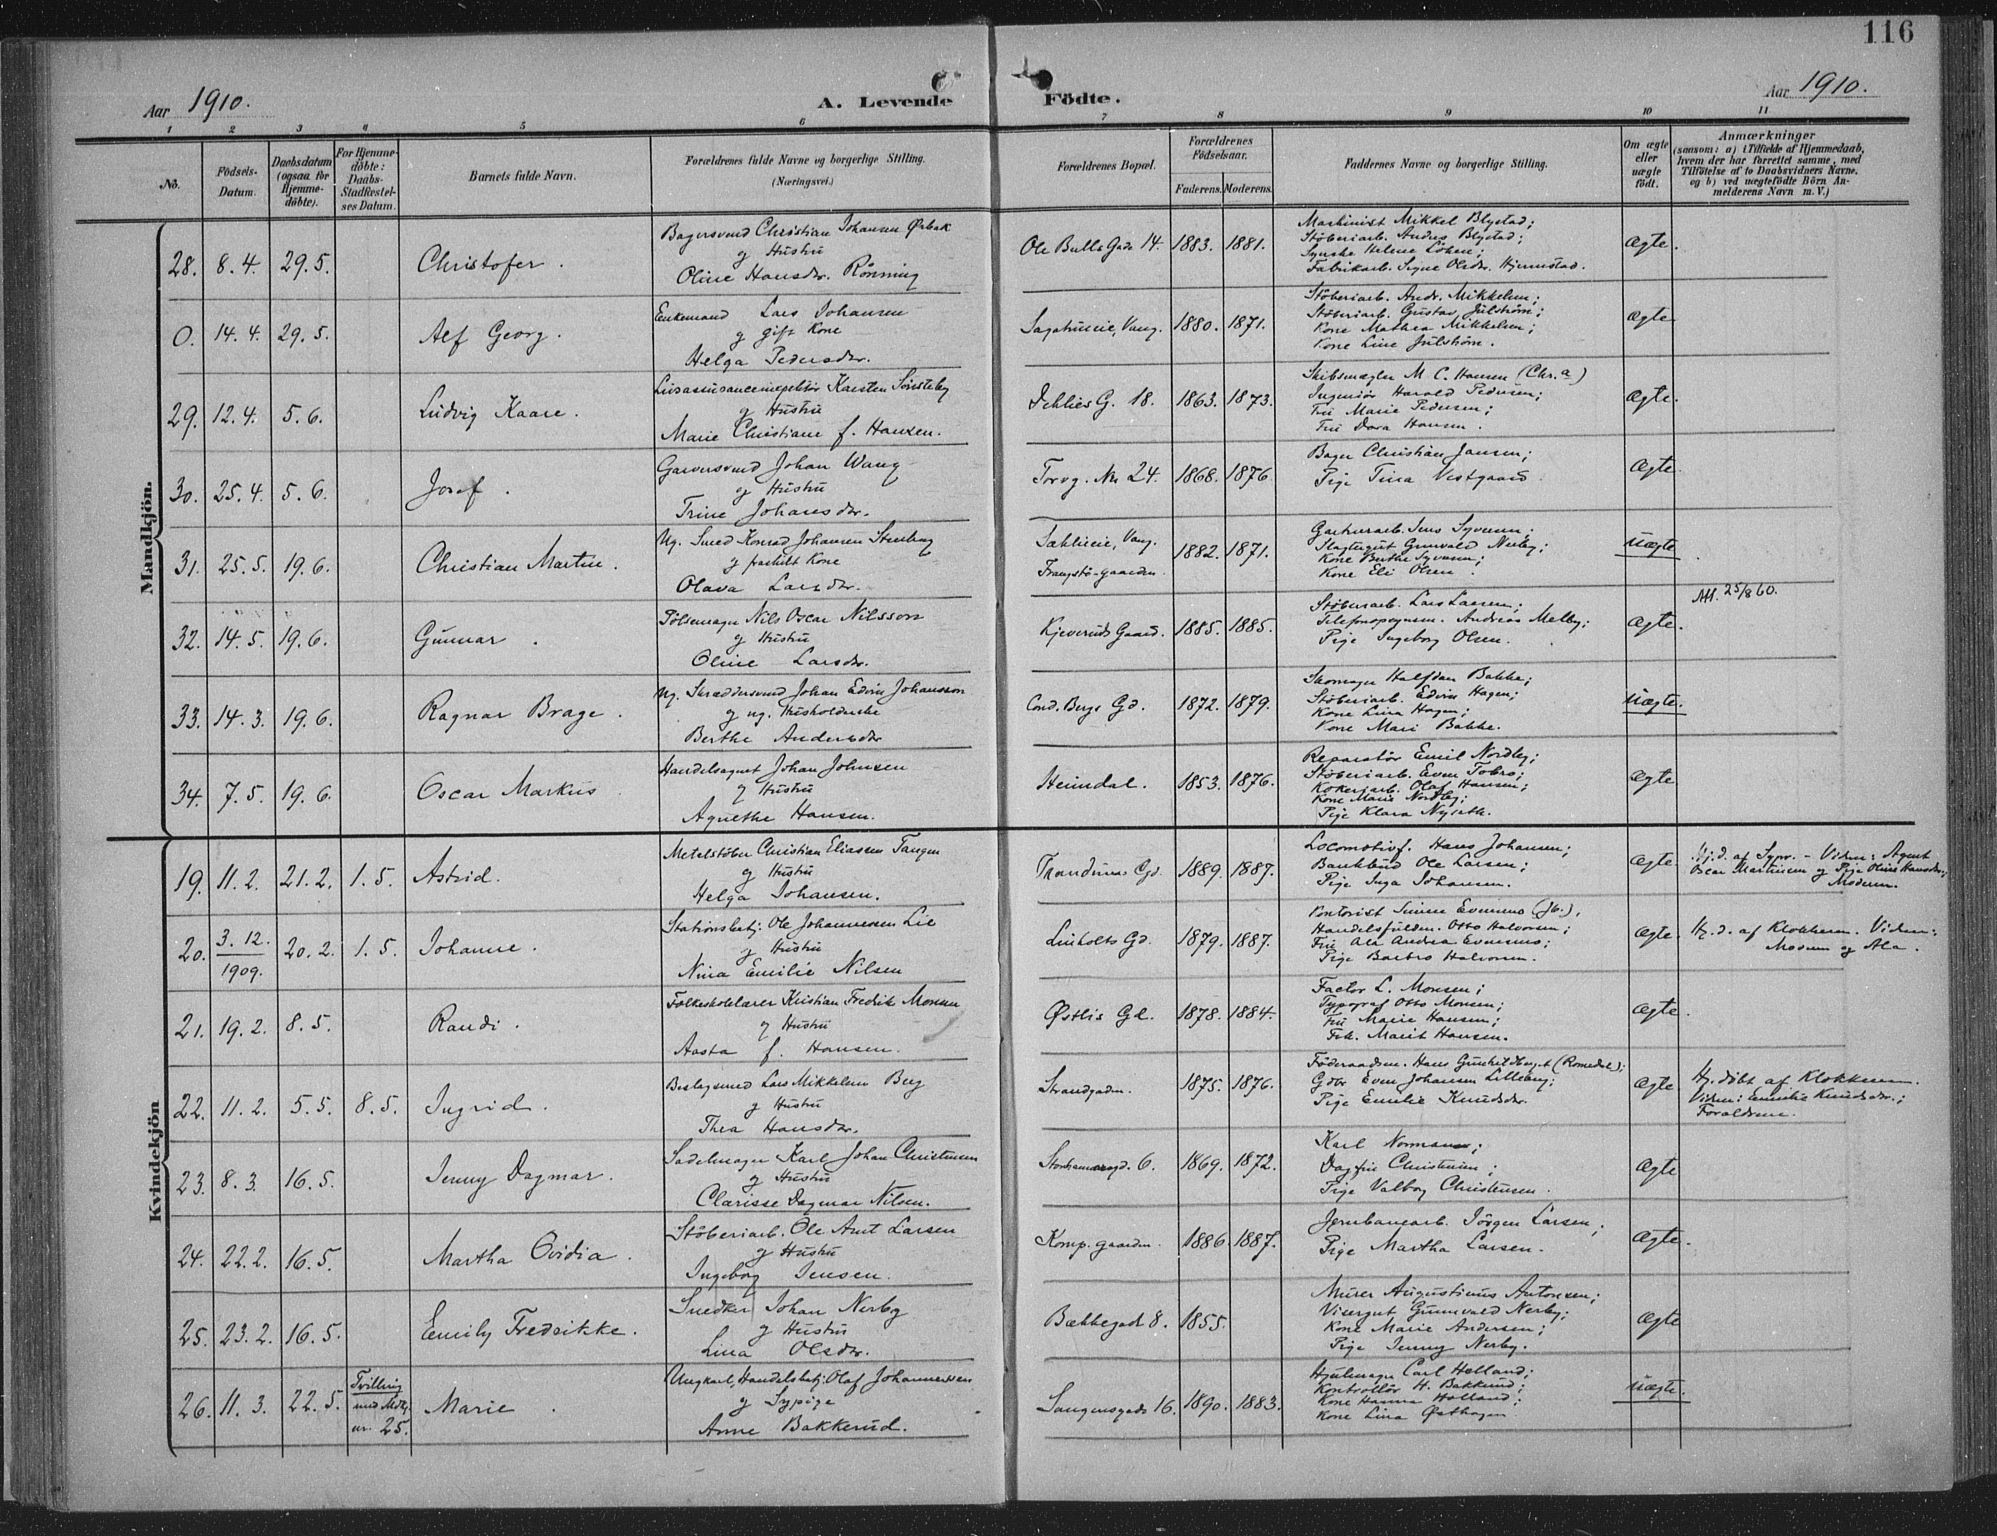 116
Aar 1910.
A. Levende Födte.
Aar 1910.
1 2 3 4 5 6 7 8 9 10 11
No.
Födsels-Datum.
Daabsdatum (ogsaa for Hjemme-döbte).
For Hjemme-döbte: Daabs-Stadfestel-ses Datum.
Barnets fulde Navn.
Forældrenes fulde Navne og borgerlige Stilling.
(Næringsvei.)
Forældrenes Bopæl.
Forældrenes Födselsaar.
Faderens. Moderens.
Faddernes Navne og borgerlige Stilling.
Om ægte eller uægte födt.
Anmærkninger
(saasom: a) i Tilfælde af Hjemmedaab, hvem der har forrettet samme, med Tilföielse af to Daabsvidners Navne, og b) ved uægtefödte Börn An-melderens Navn m. V.)
Mandkjön.
28. 8.4. 29.5. Christofer.
Bagersvend Christian Johansen Ørbak
og Hustru
Oline Hansdr. Rönning
Ole Bulls Gade 14. 1883. 1881.
Maskinist Mikkel Blystad;
Stöberiarb. Andres Blystad;
Syerske Helene Löken;
Fabrikarb. Signe Olsdr. Hjemstad.
ægte.
0. 14.4. 29.5. Alf Georg.
Enkemand Lars Johansen
og gift Kone
Helga Pedersdr.
Sagatuneie, Vang. 1880. 1871.
Stöberiarb. Andr. Mikkelsen;
Stöberiarb. Gustav Julström;
Kone Mathea Mikkelsen;
Kone Line Julström.
ægte
29. 12.4. 5.6. Ludvig Kaare.
Livsassuranceinspektör Karsten Sönsteby
og Hustru
Marie Christiane f. Hansen.
Dehlies G. 18. 1863. 1873.
Skibsmægler M. C. Hansen (Chr.a)
Ingeniör Harald Pedersen;
Fru Marie Pedersen;
Fru Dora Hansen.
ægte.
30. 25.4. 5.6. Josef.
Garversvend Johan Wang
og Hustru
Trine Johansdr.
Torvg. No 24. 1868. 1876.
Bager Christian Jansen;
Pige Tina Vestgaard.
ægte.
31. 25.5. 19.6. Christian Martin.
Ug. Smed Konrad Johansen Stenberg
og fraskilt Kone
Olava Larsdr.
Sæhlieeie, Vang.
Frangstö-gaarden. 1882. 1871.
Gartnerarb. Jens Syversen;
Slagtergut Gunvald Nerby;
Kone Berthe Syversen;
Kone Eli Olsen.
uægte
32. 14.5. 19.6. Gunnar.
Pölsemager Nils Oscar Nilsson
og Hustru
Oline Larsdr.
Kjeveruds Gaard. 1885. 1885.
Stöberiarb. Lars Larsen;
Telefonopsynsm. Andreas Melby;
Pige Ingeborg Olsen.
ægte.
Att. 25/8 60.
33. 14.3. 19.6. Ragnar Brage.
Ug. Skræddersvend Johan Edvin Johansson
og ug. Husholderske
Berthe Andersdr
Cond. Bergs Gd. 1872. 1879.
Skomager Halfdan Bakke;
Stöberiarb. Edvin Hagen;
Kone Lina Hagen;
Kone Mari Bakke.
uægte.
34. 7.5. 19.6. Oscar Markus
Handelsagent Johan Johnsen
og Hustru
Agnethe Hansen.
Heimdal. 1853. 1876.
Reparatör Emil Nordby;
Stöberiarb. Even Tobro;
Kokeriarb. Olaf Hansen;
Kone Marie Nordby;
Pige Klara Nyseth.
ægte
Kvindekjön
19. 11.2. 21.2. 1.5. Astrid.
Metelstöber Christian Eliassen Tangen
og Hustru
Helga Johansen.
Thandems Gd. 1889. 1887.
Locomotivf. Hans Johansen;
Bankbud Ole Larsen;
Pige Inga Johansen.
ægte.
Hj.d. af Sypr. - Vidner: Agent
Oscar Martinsen og Pige Oline Hansdr.;
Moderen.
20. 3.12. 1909. 20.2. 1.5. Johanne.
Stationsbetj. Ole Johannessen Lie
og Hustru
Nina Emilie Nilsen
Linholts Gd. 1879. 1887.
Kontorist Simen Evensmo (Jb.);
Handelsfuldm. Otto Halvorsen;
Fru Ala Andrea Evensmo;
Pige Barbro Halvorsen.
ægte.
Hj.d. af Klokkeren. Vidner:
Moderen og Ala.
21. 19.2. 8.5. Randi.
Folkeskolelærer Kristian Fredrik Monsen
og Hustru
Aasta f. Hansen.
Østlis Gd. 1878. 1884.
Factor L. Monsen;
Typograf Otto Monsen;
Fru Marie Hansen;
Frk. Marit Hansen.
ægte.
22. 11.2. 5.5. 8.5. Ingrid.
Beslagsmed Lars Mikkelsen Berg
og Hustru
Thea Hansdr.
Strandgaden. 1875. 1876.
Föderaadsm. Hans Gunhildberget (Romedal);
Gdbr Even Johansen Lilleeng;
Pige Emilie Knudsdr.
ægte
Hj. döbt af Klokkeren.
Vidner: Emilie Knudsdr.;
Forældrene.
23. 8.3. 16.5. Jenny Dagmar.
Sadelmager Karl Johan Christensen
og Hustru
Clarisse Dagmar Nilsen.
Storhamargd. 6. 1869. 1872.
Karl Normann;
Dagfin Christensen;
Pige Valborg Christensen.
ægte
24. 22.2. 16.5. Martha Ovidia.
Stöberiarb. Ole Amt Larsen
og Hustru
Ingeborg Jensen.
Komp. gaarden. 1886. 1887.
Jernbanearb. Jörgen Larsen;
Pige Martha Larsen.
ægte.
25. 23.2. 16.5. Emily Fredrikke.
Snedker Johan Nerby
og Hustru
Lina Olsdr.
Bækkegade 8. 1855.
Murer Augustinus Antonsen;
Visergut Gunnvald Nerby;
Kone Marie Andersen;
Pige Jenny Nerby.
ægte
26. 11.3. 22.5. Tvilling med Mdkj. nr. 25. Marie.
Ungkarl, Handelsbetj: Olaf Johannessen
og Sypige
Anne Bakkerud.
Vangensgade 16. 1890. 1883.
Hjulmager Carl Helland;
Kontrollör H. Bakkerud;
Kone Hanna Holland;
Kone Lina Østhagen.
uægte.